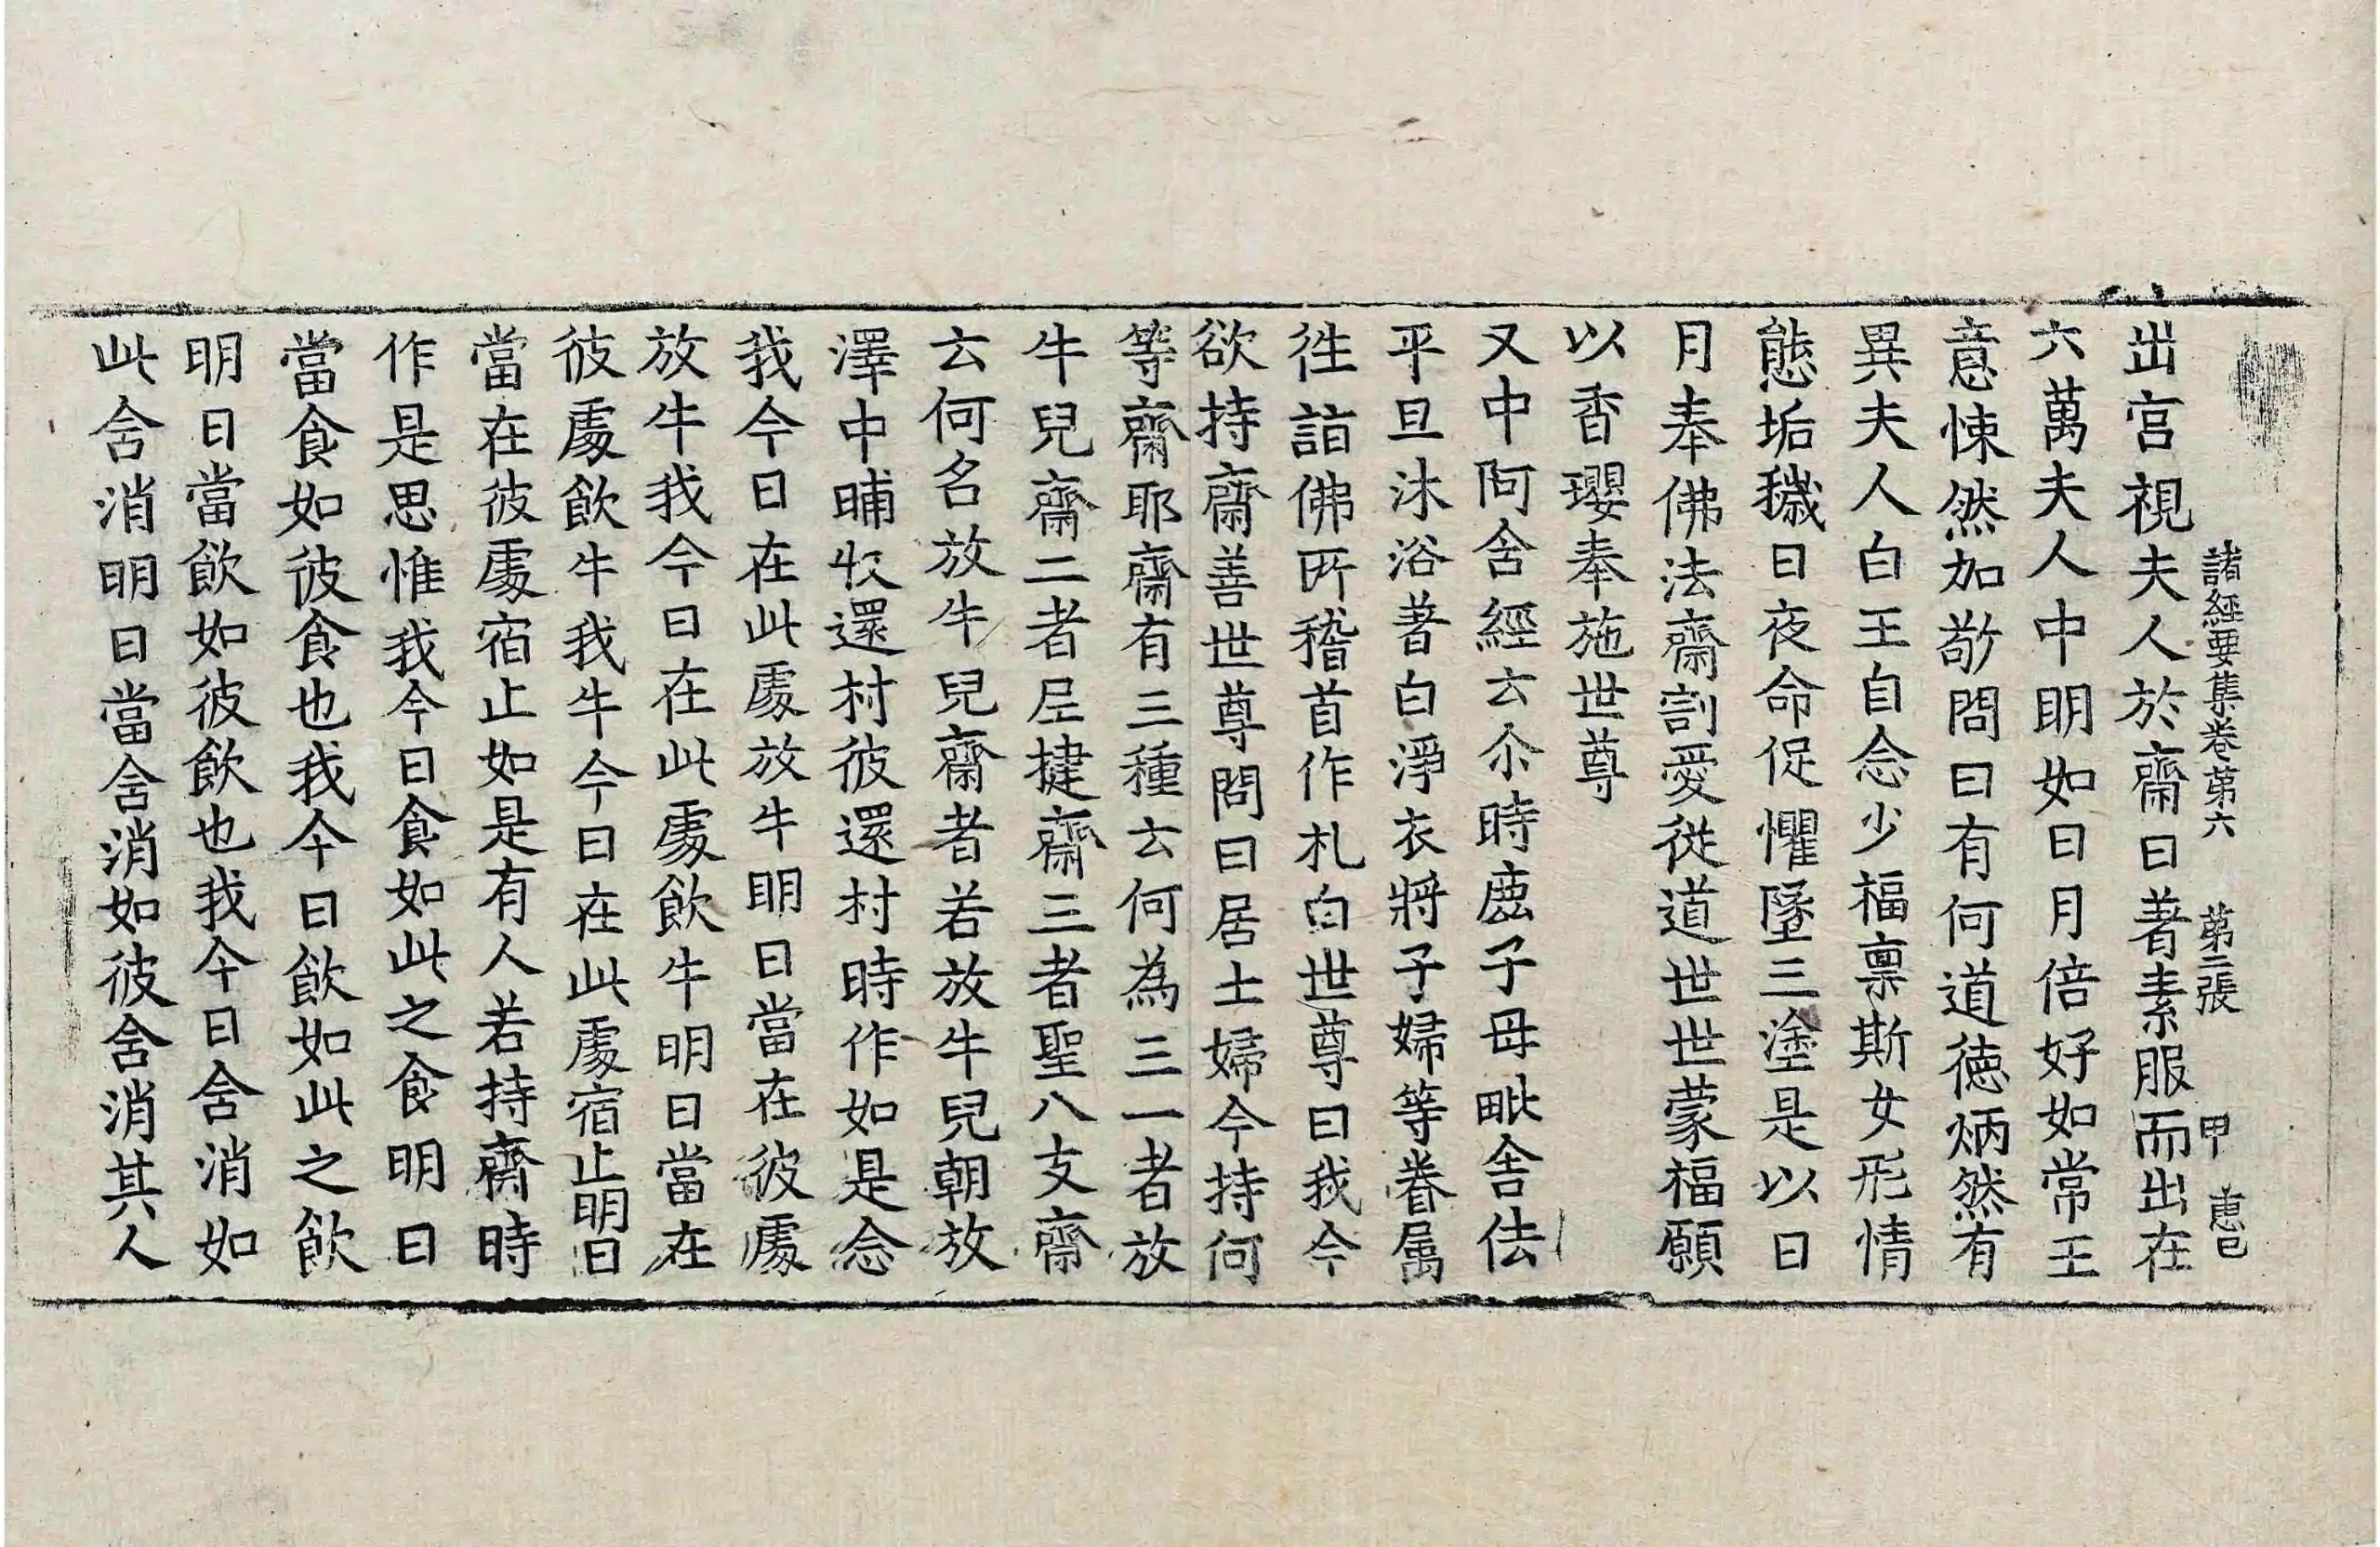 諸經要集卷第六 第二張 甲 惠巳
出宮視夫人於齋日著素服而出在
六萬夫人中明如日月倍好如常王
意悚然加敬問曰有何道德炳然有
異夫人白王自念少福稟斯女形情
態垢穢日夜命促懼墜三塗是以日
月奉佛法齋割愛從道世世蒙福願
以香瓔奉施世尊
又中阿含經云尒時鹿子母毗舍佉
平旦沐浴著白淨衣將子婦等眷属
往詣佛所稽首作礼白世尊曰我今
欲持齋善世尊問曰居士婦今持何
等齋耶齋有三種云何為三一者放
牛兒齋二者尼揵齋三者聖八支齋
云何名放牛兒齋者若放牛兒朝放
澤中晡收還村彼還村時作如是念
我今日在此處放牛明日當在彼處
放牛我今日在此處飲牛明日當在
彼處飲牛我牛今日在此處宿止明日
當在彼處宿止如是有人若持齋時
作是思惟我今日食如此之食明日
當食如彼食也我今日飲如此之飲
明日當飲如彼飲也我今日含消如
此含消明日當含消如彼含消其人